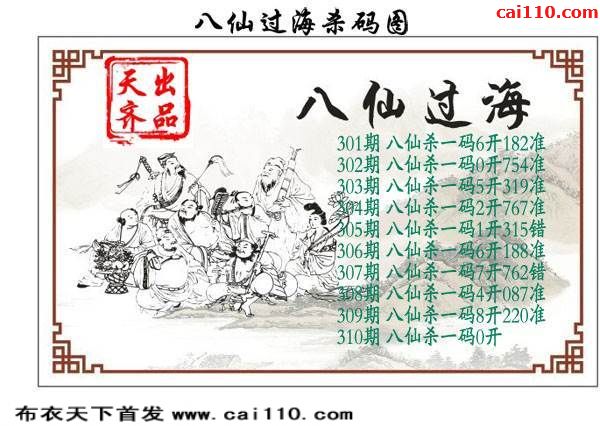 八仙过海杀码图
cai110.com
天齐出品
八仙过海
301期 八仙杀一码6开182准
302期 八仙杀一码0开754准
303期 八仙杀一码5开319准
304期 八仙杀一码2开767准
305期 八仙杀一码1开315错
306期 八仙杀一码6开188准
307期 八仙杀一码7开762错
308期 八仙杀一码4开087准
309期 八仙杀一码8开220准
310期 八仙杀一码0开
布衣天下首发 www.cai110.com